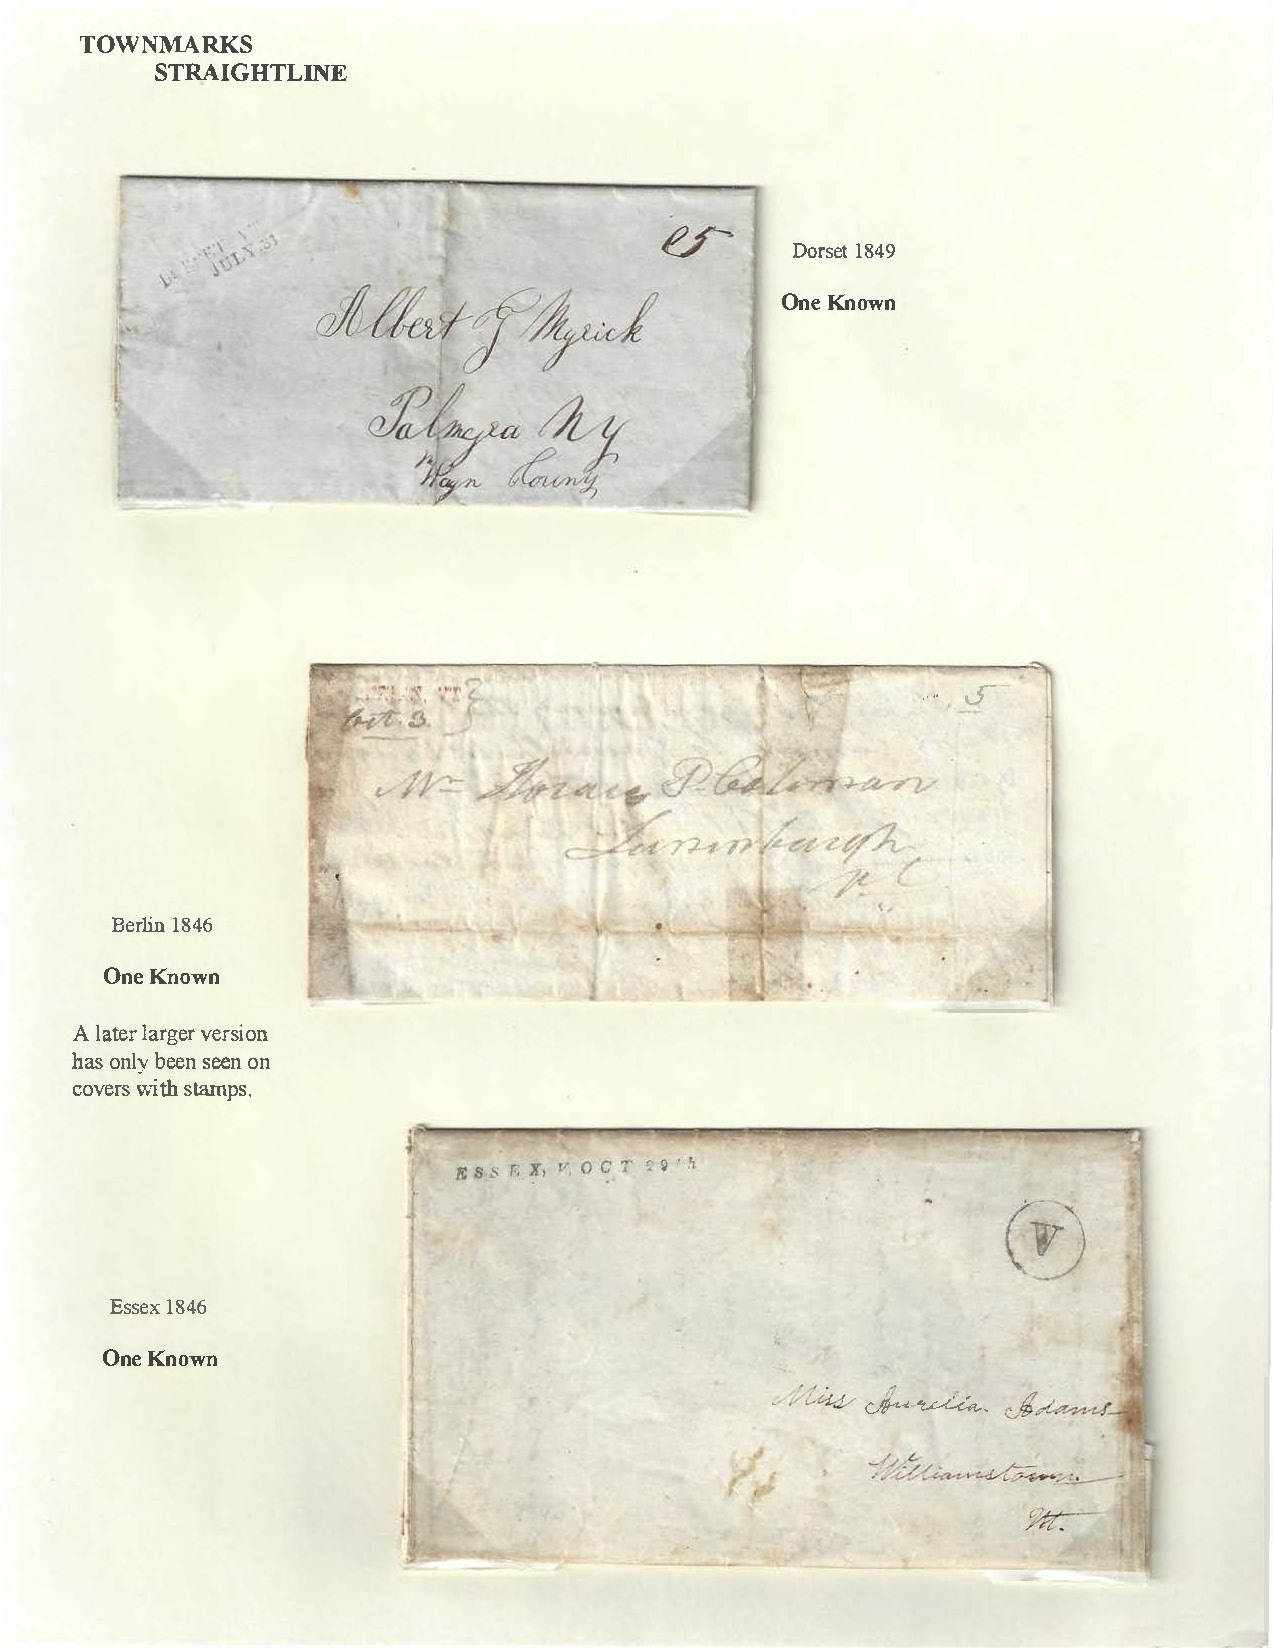 TOWNMARKS
STRAIGHTLINE
JULY.31
25
Albert G Myrick
Palmyra NY
Wayn County
Dorset 1849
One Known
VT
Oct. 3.
5
Mr Horace P. Coleman
Berlin 1846
One Known
A later larger version
has only been seen on
covers with stamps.
ESSEX, V. OCT 29th
V
Miss Aurelia Adams
Williamstown
Vt.
Essex 1846
One Known